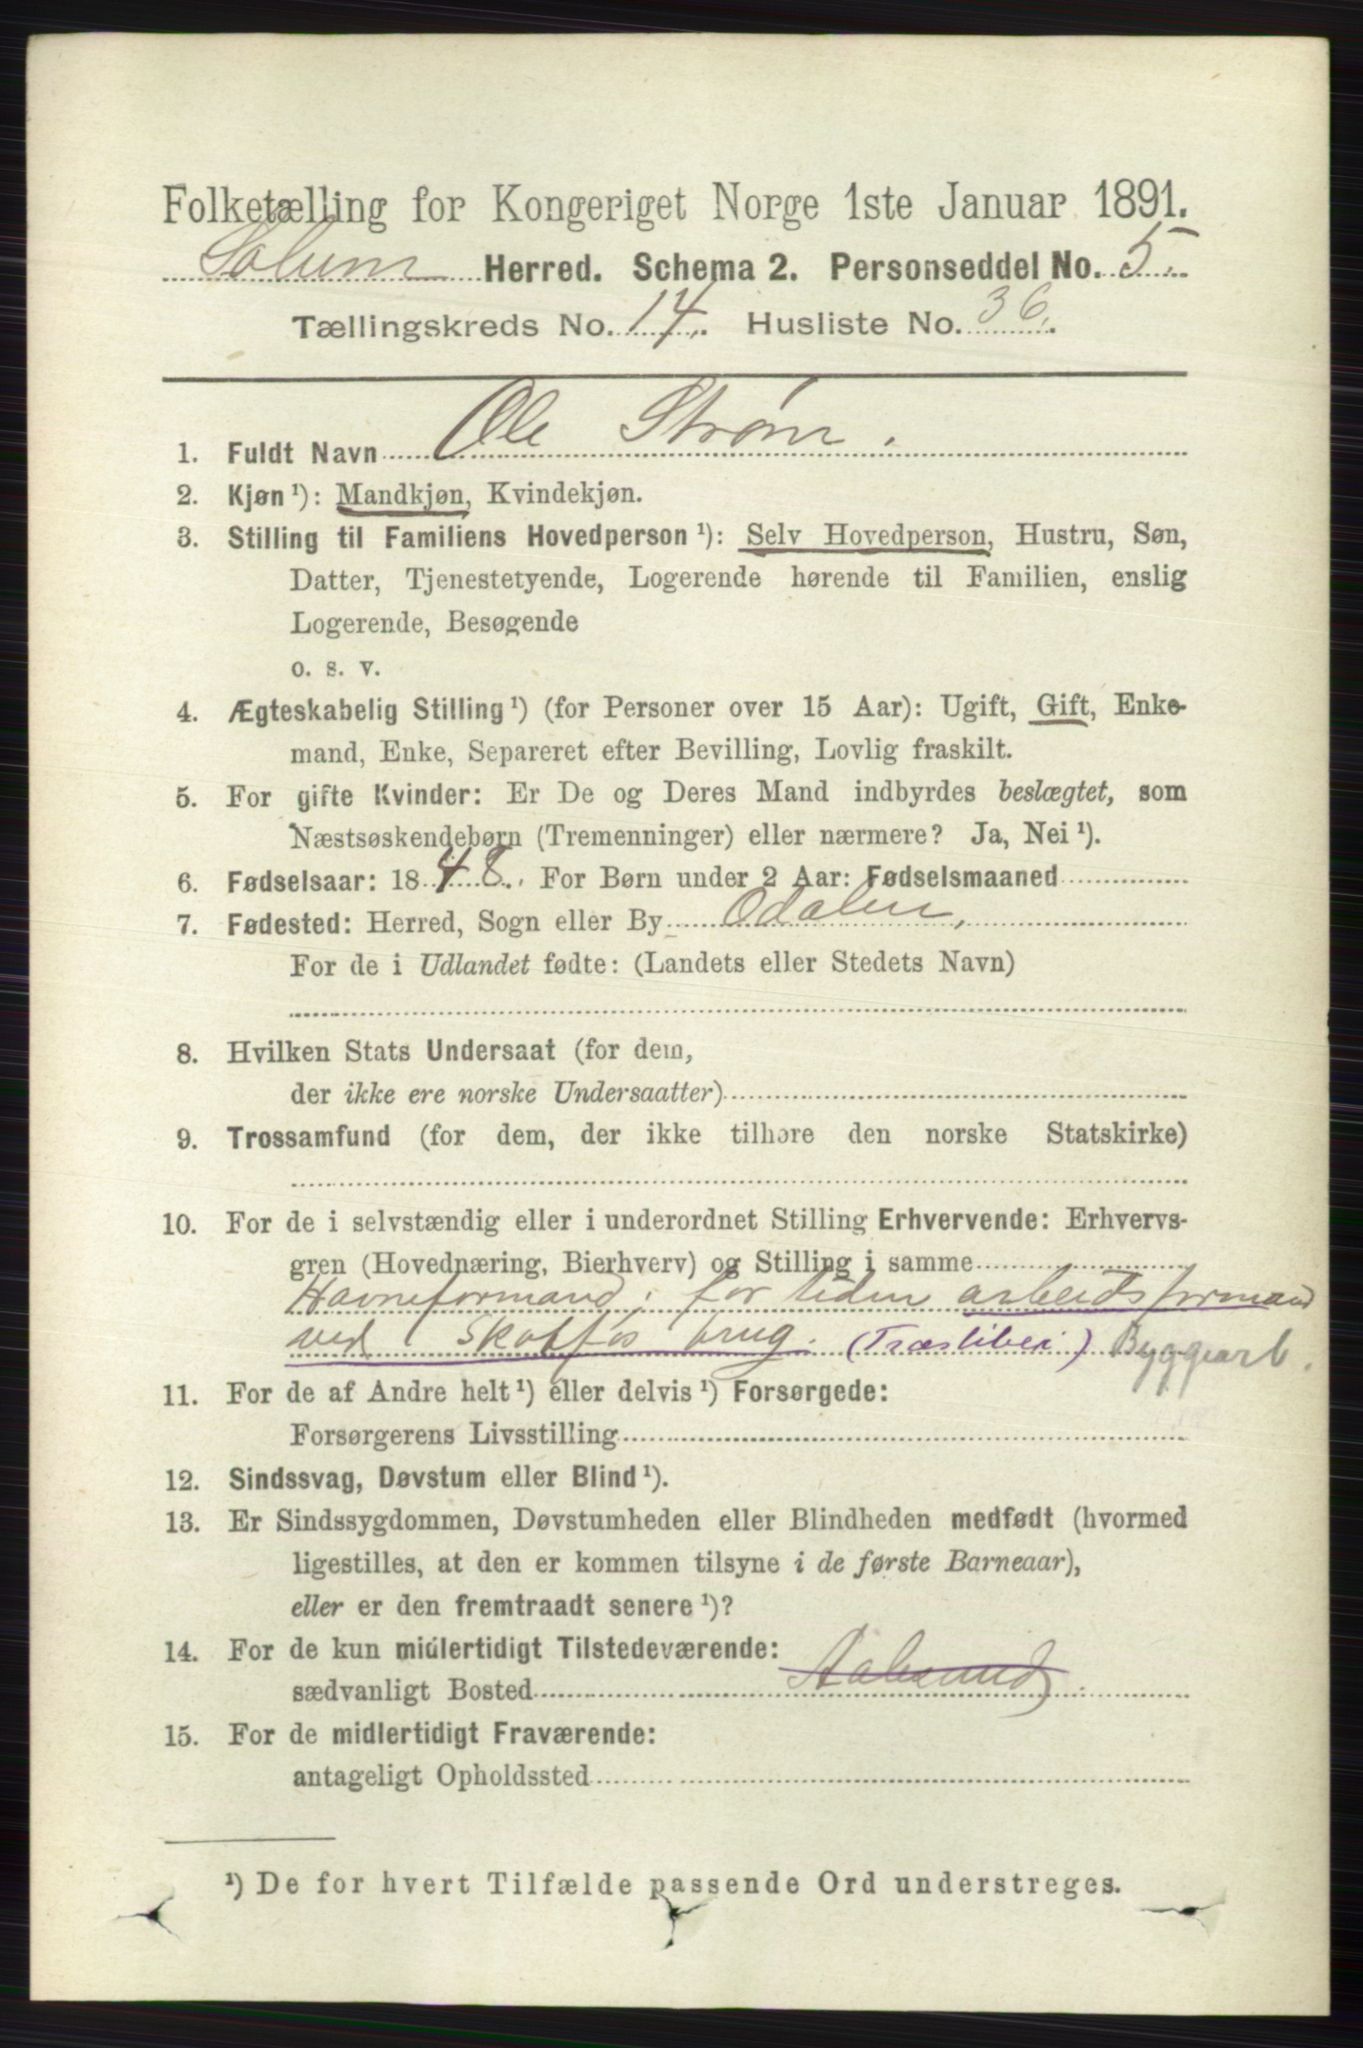 Folketælling for Kongeriget Norge 1ste Januar 1891.
Solum Herred. Schema 2. Personseddel No. 5.
Tællingskreds No. 14. Husliste No. 36.
1. Fuldt Navn Ole Strøm.
2. Kjøn ¹): Mandkjøn, Kvindekjøn.
3. Stilling til Familiens Hovedperson ¹): Selv Hovedperson, Hustru, Søn,
Datter, Tjenestetyende, Logerende hørende til Familien, enslig
Logerende, Besøgende
o. s. v.
4. Ægteskabelig Stilling ¹) (for Personer over 15 Aar): Ugift, Gift, Enke-
mand, Enke, Separeret efter Bevilling, Lovlig fraskilt.
5. For gifte Kvinder: Er De og Deres Mand indbyrdes beslægtet, som
Næstsøskendebørn (Tremenninger) eller nærmere? Ja, Nei ¹).
6. Fødselsaar: 1848. For Børn under 2 Aar: Fødselsmaaned
7. Fødested: Herred, Sogn eller By Odalen,
For de i Udlandet fødte: (Landets eller Stedets Navn)
8. Hvilken Stats Undersaat (for dem,
der ikke ere norske Undersaatter)
9. Trossamfund (for dem, der ikke tilhøre den norske Statskirke)
10. For de i selvstændig eller i underordnet Stilling Erhvervende: Erhvervs-
gren (Hovednæring, Bierhverv) og Stilling i samme
Havneformand; for tiden arbeidsformand
ved Skotfos brug. (Træsliberi) Byggearb.
11. For de af Andre helt ¹) eller delvis ¹) Forsørgede:
Forsørgerens Livsstilling
12. Sindssvag, Døvstum eller Blind ¹).
13. Er Sindssygdommen, Døvstumheden eller Blindheden medfødt (hvormed
ligestilles, at den er kommen tilsyne i de første Barneaar),
eller er den fremtraadt senere ¹)?
14. For de kun midlertidigt Tilstedeværende:
sædvanligt Bosted Aalesund
15. For de midlertidigt Fraværende:
antageligt Opholdssted
¹) De for hvert Tilfælde passende Ord understreges.